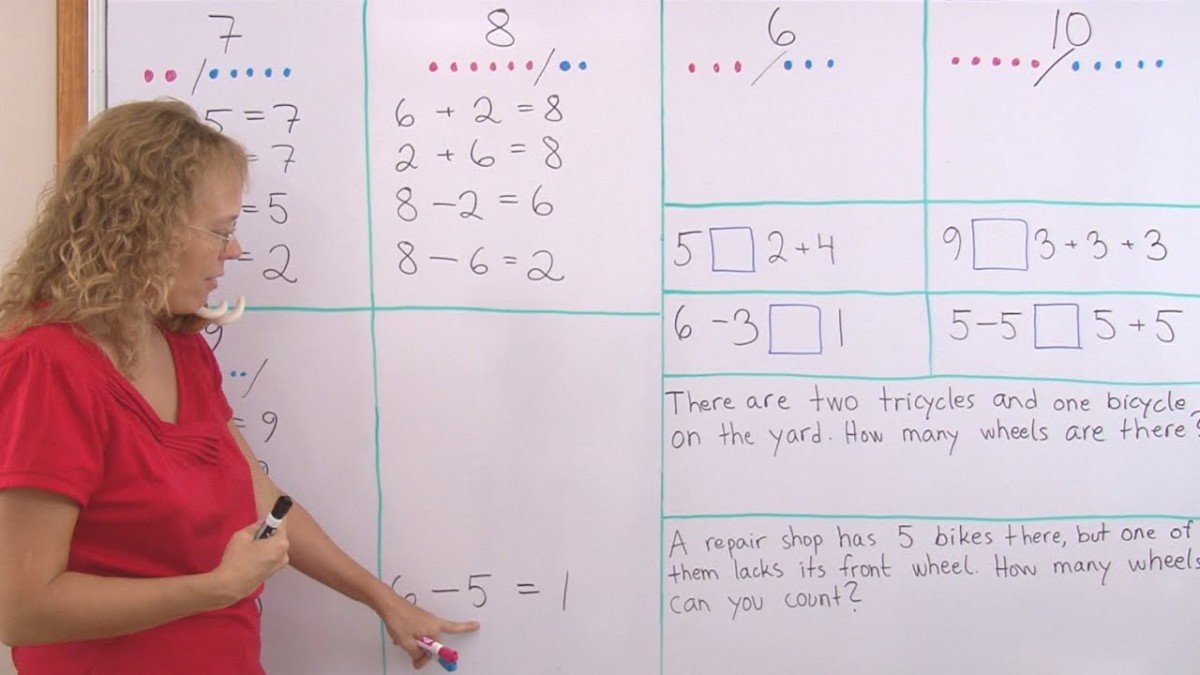 7
5 = 7
= 7
= 5
= 2
8
6 + 2 = 8
2 + 6 = 8
8 - 2 = 6
8 - 6 = 2
9
= 9
6 - 5 = 1
6
10
5 □ 2 + 4
9 □ 3 + 3 + 3
6 - 3 □ 1
5 - 5 □ 5 + 5
There are two tricycles and one bicycle
on the yard. How many wheels are there?
A repair shop has 5 bikes there, but one of
them lacks its front wheel. How many wheels
can you count?